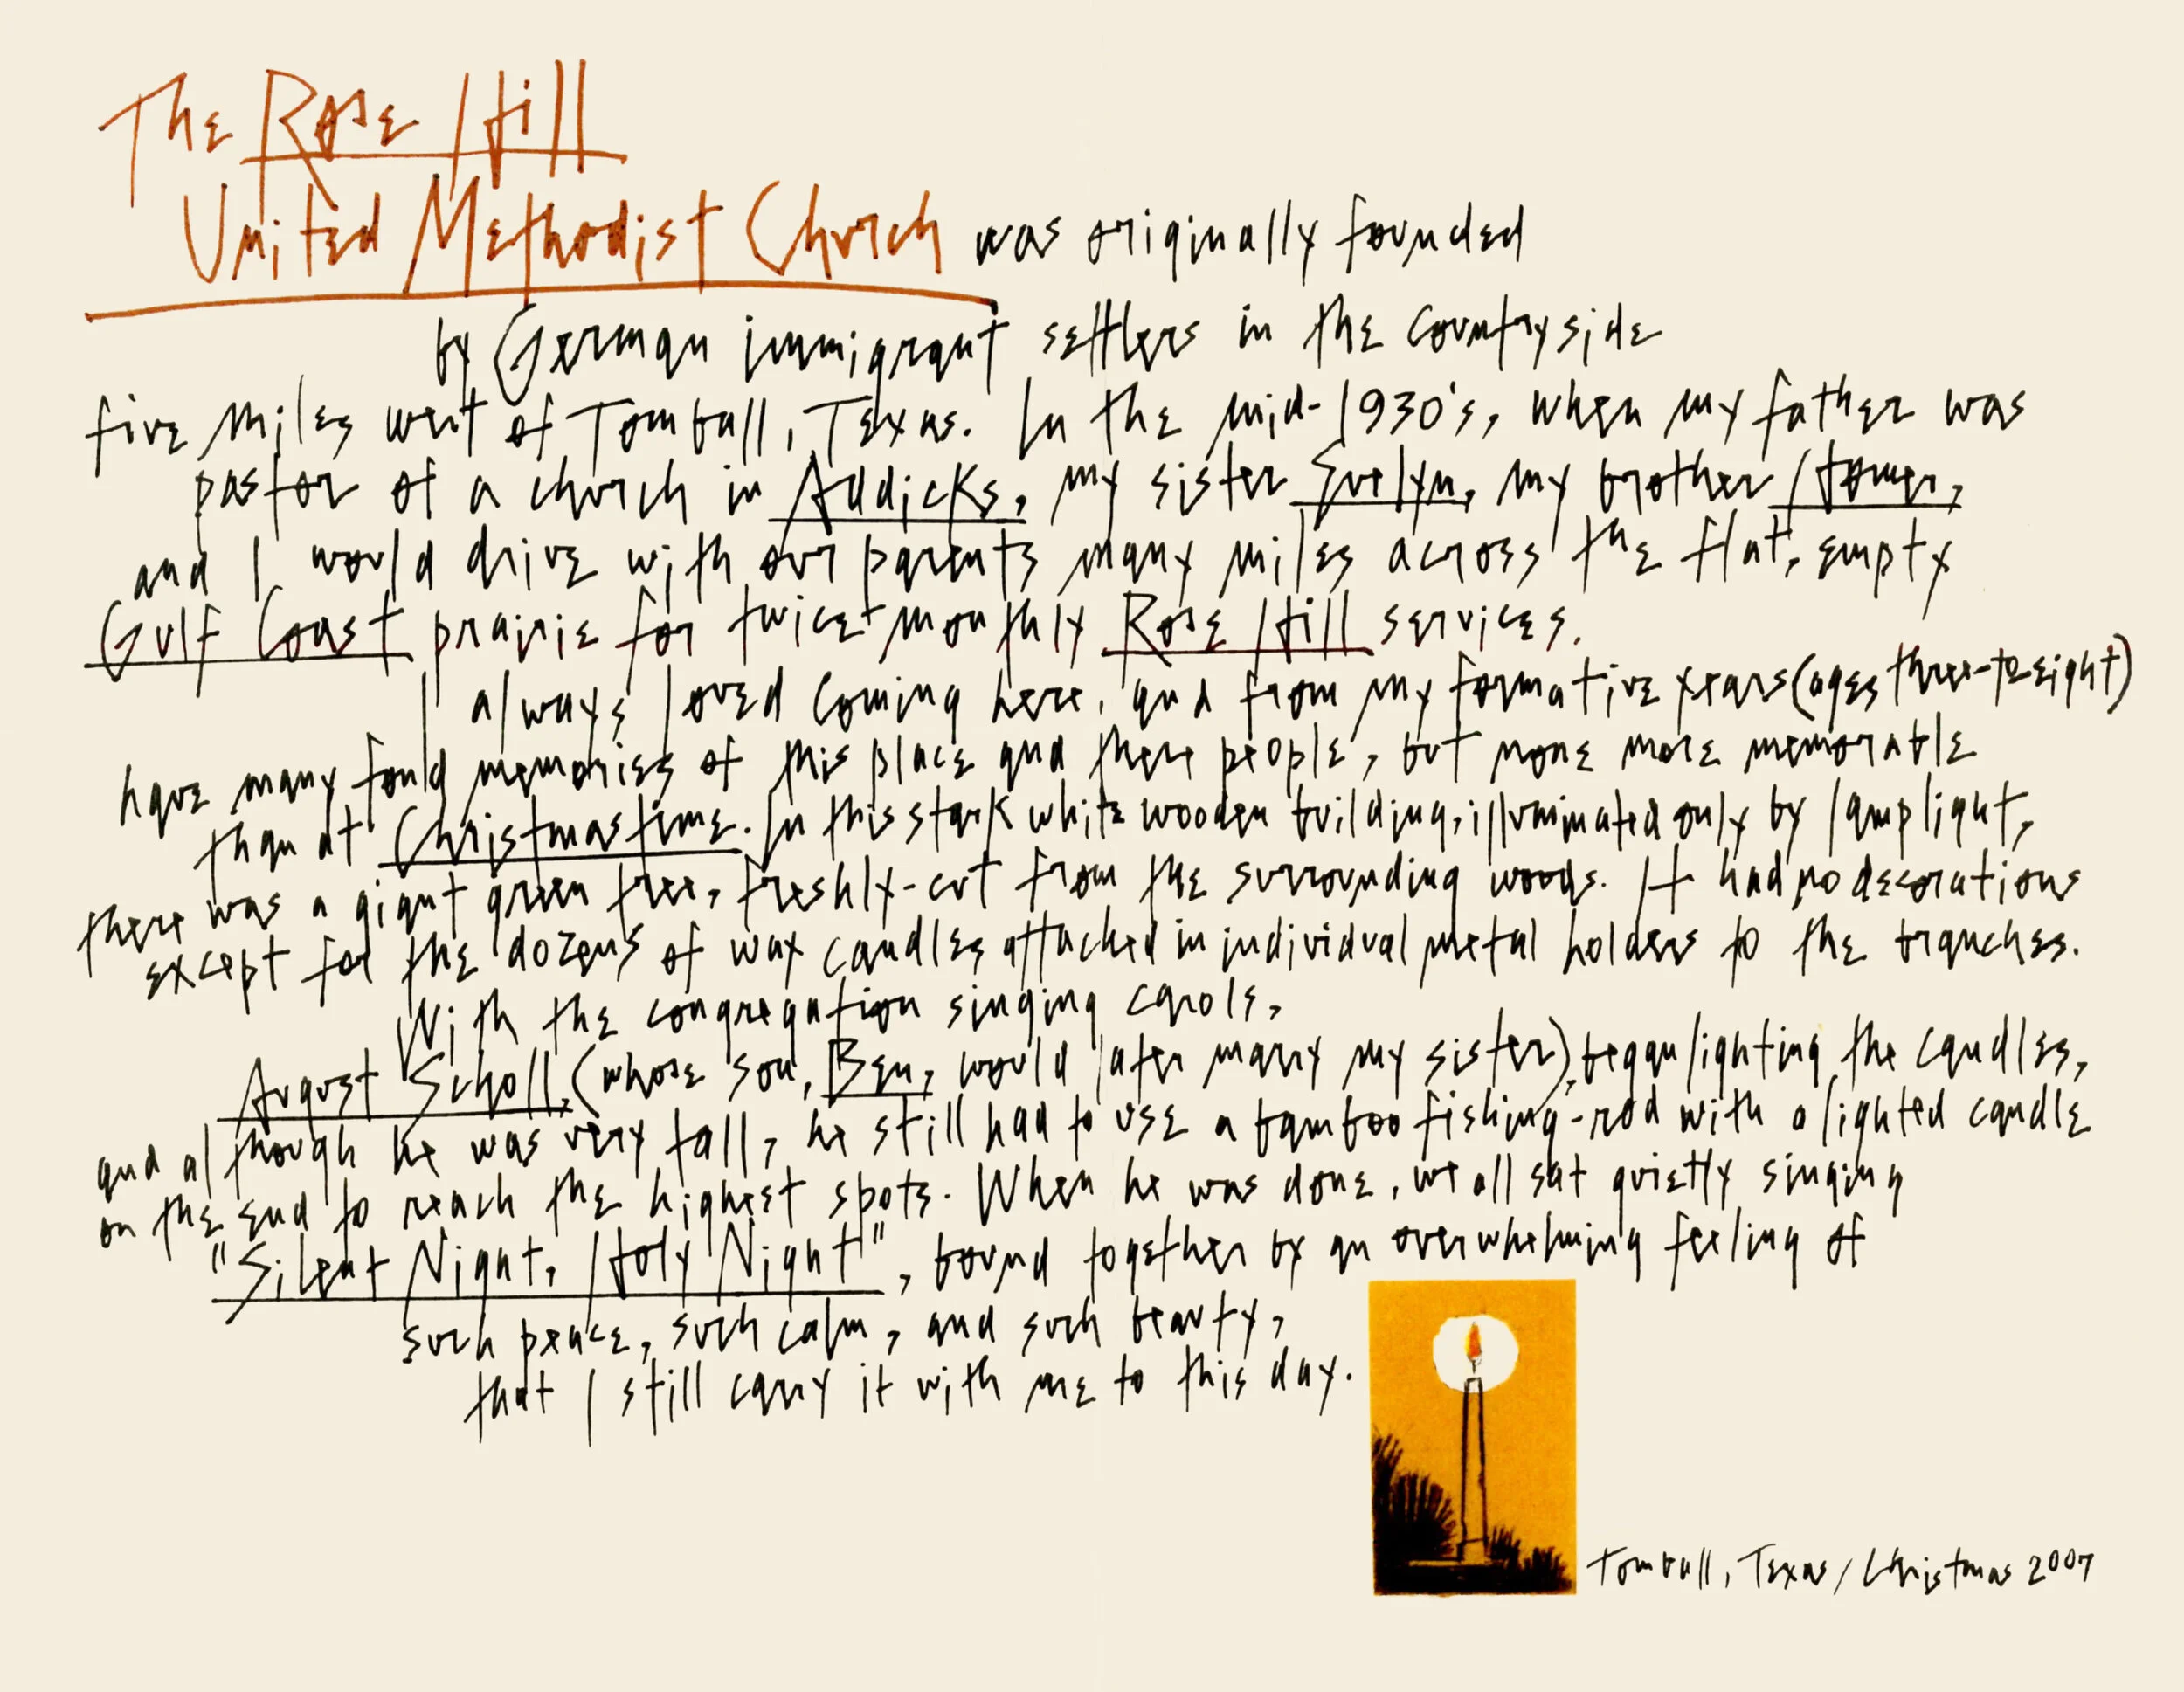 The Rose Hill
United Methodist Church was originally founded
by German immigrant settlers in the countryside
five miles west of Tomball, Texas. In the mid-1930's, when my father was
pastor of a church in Addicks, my sister Evelyn, my brother Homer,
and I would drive with our parents many miles across the flat, empty
Gulf Coast prairie for twice-monthly Rose Hill services.
I always loved coming here, and from my formative years (ages three-to-eight)
have many fond memories of this place and these people, but none more memorable
than at Christmastime. In this stark white wooden building, illuminated only by lamplight,
there was a giant green tree, freshly-cut from the surrounding woods. It had no decorations
except for the dozens of wax candles attached in individual metal holders to the branches.
With the congregation singing carols,
August Scholl, (whose son, Ben, would later marry my sister), began lighting the candles,
and although he was very tall, he still had to use a bamboo fishing-rod with a lighted candle
on the end to reach the highest spots. When he was done, we all sat quietly singing
"Silent Night, Holy Night", bound together by an overwhelming feeling of
such peace, such calm, and such beauty,
that I still carry it with me to this day.
Tomball, Texas/Christmas 2007